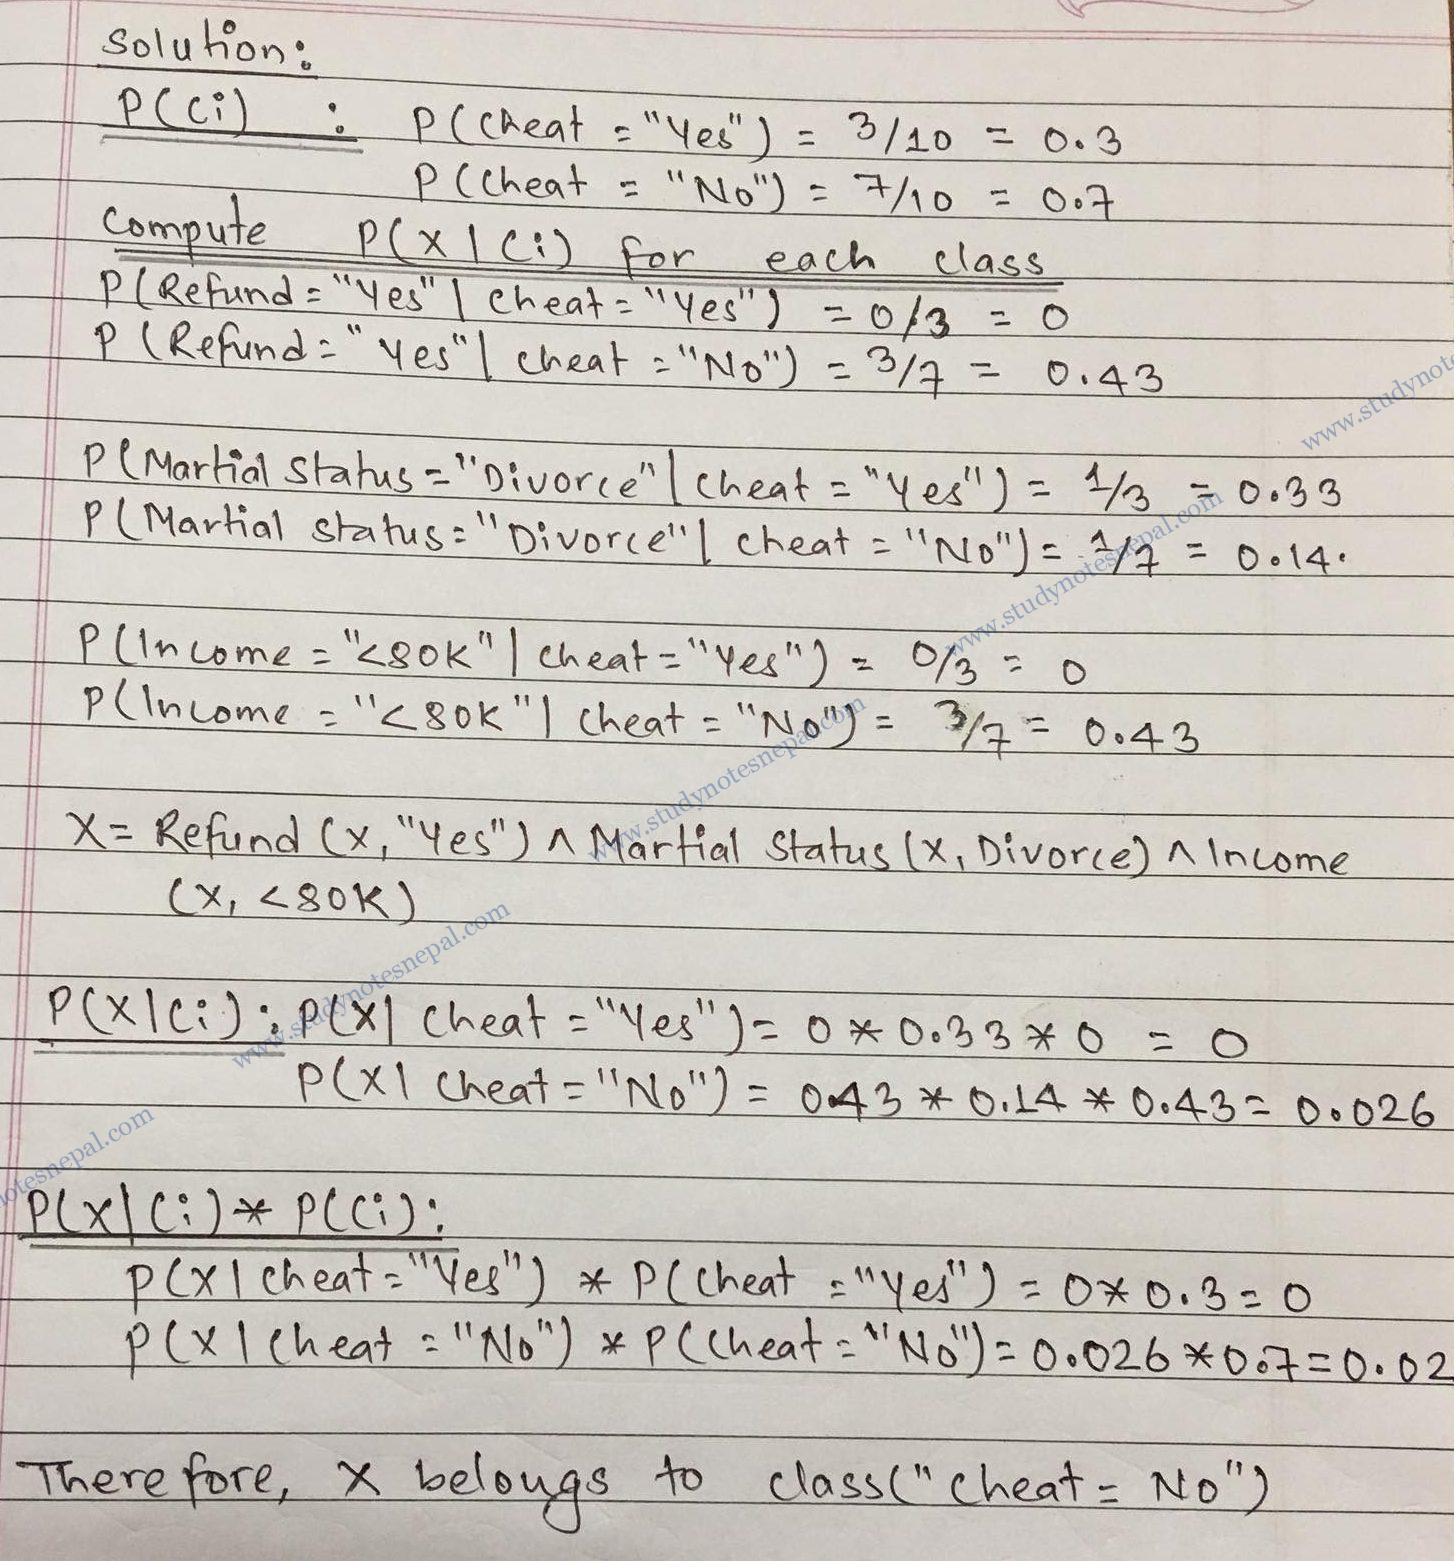 Solution:
P(Ci) : P(Cheat = "Yes") = 3/10 = 0.3
P(Cheat = "No") = 7/10 = 0.7
Compute P(X|Ci) for each class
P(Refund = "Yes" | Cheat = "Yes") = 0/3 = 0
P(Refund = "Yes" | Cheat = "No") = 3/7 = 0.43
www.studynot
P(Martial Status = "Divorce" | Cheat = "Yes") = 1/3 = 0.33
P(Martial Status = "Divorce" | Cheat = "No") = 1/7 = 0.14.
www.studynotesnepal.com
P(Income = "<80K" | Cheat = "Yes") = 0/3 = 0
P(Income = "<80K" | Cheat = "No") = 3/7 = 0.43
www.studynotesnepal.com
X = Refund (X, "Yes") ∧ Martial Status (X, Divorce) ∧ Income
(X, <80K)
www.studynotesnepal.com
P(X|Ci) : P(X| Cheat = "Yes") = 0 * 0.33 * 0 = 0
P(X| Cheat = "No") = 0.43 * 0.14 * 0.43 = 0.026
otesnepal.com
P(X|Ci) * P(Ci):
P(X|Cheat = "Yes") * P(Cheat = "Yes") = 0 * 0.3 = 0
P(X|Cheat = "No") * P(Cheat = "No") = 0.026 * 0.7 = 0.02
Therefore, X belongs to class("Cheat = No")